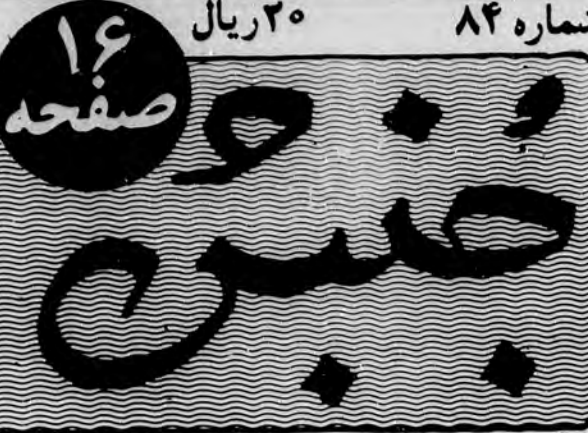 شماره ۸۴
۲۰ریال
۱۶
صفحه
جنبش